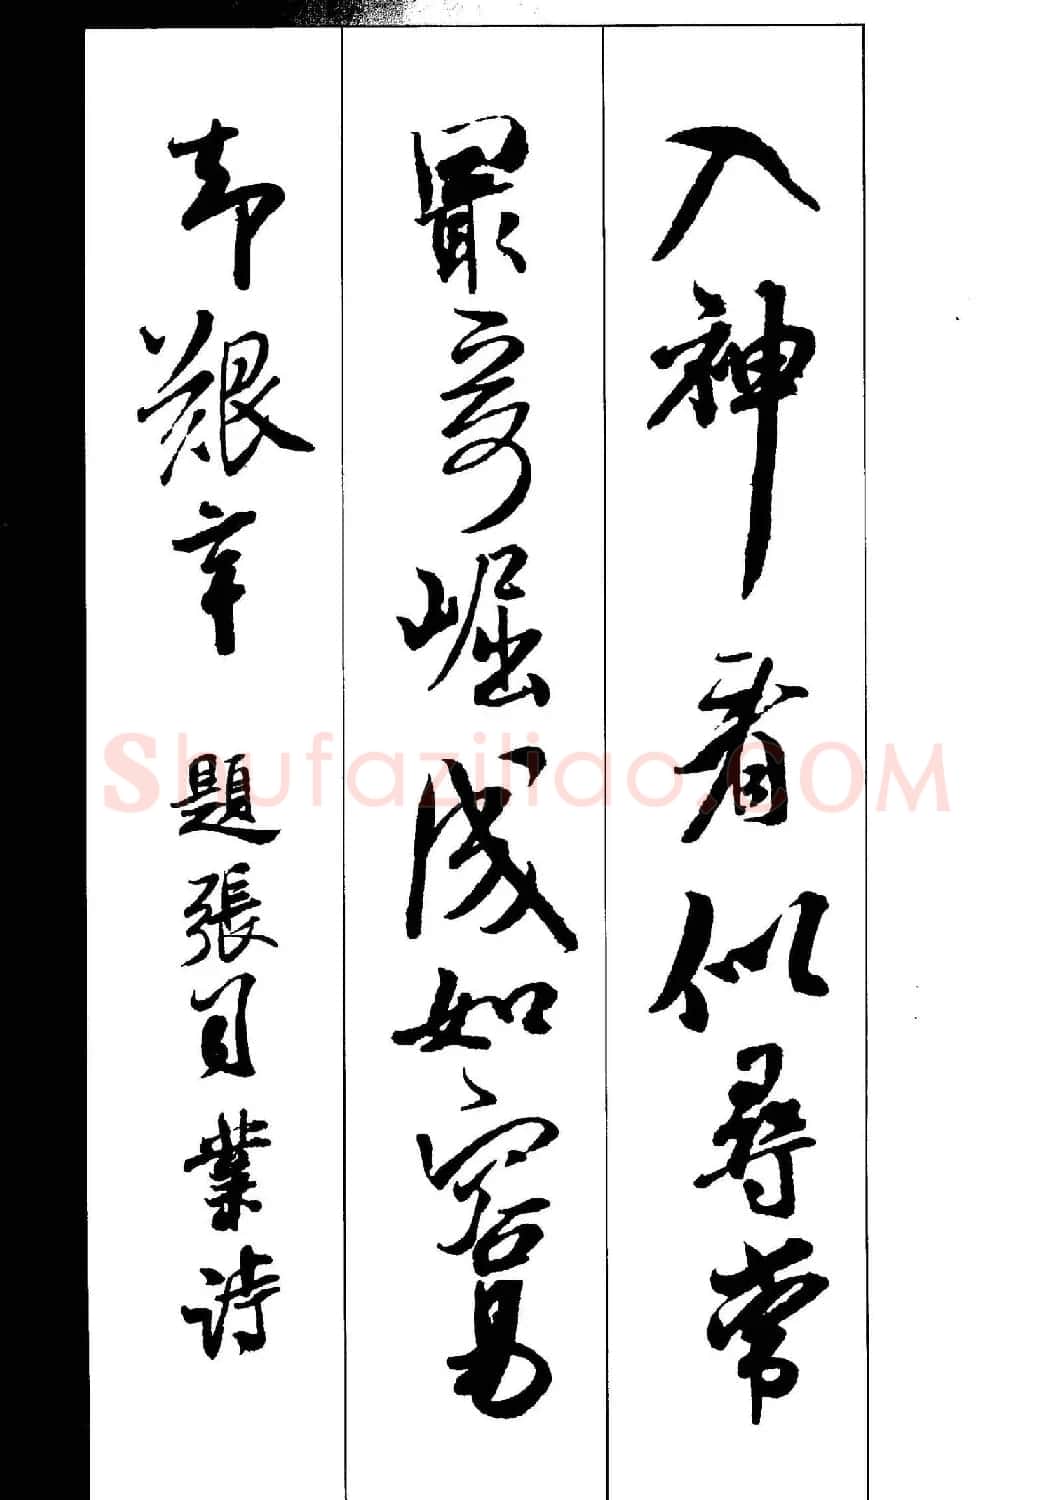 入神看似尋常
最奇崛成如容易
却艱辛 題張司業詩
Shufaziliao.COM